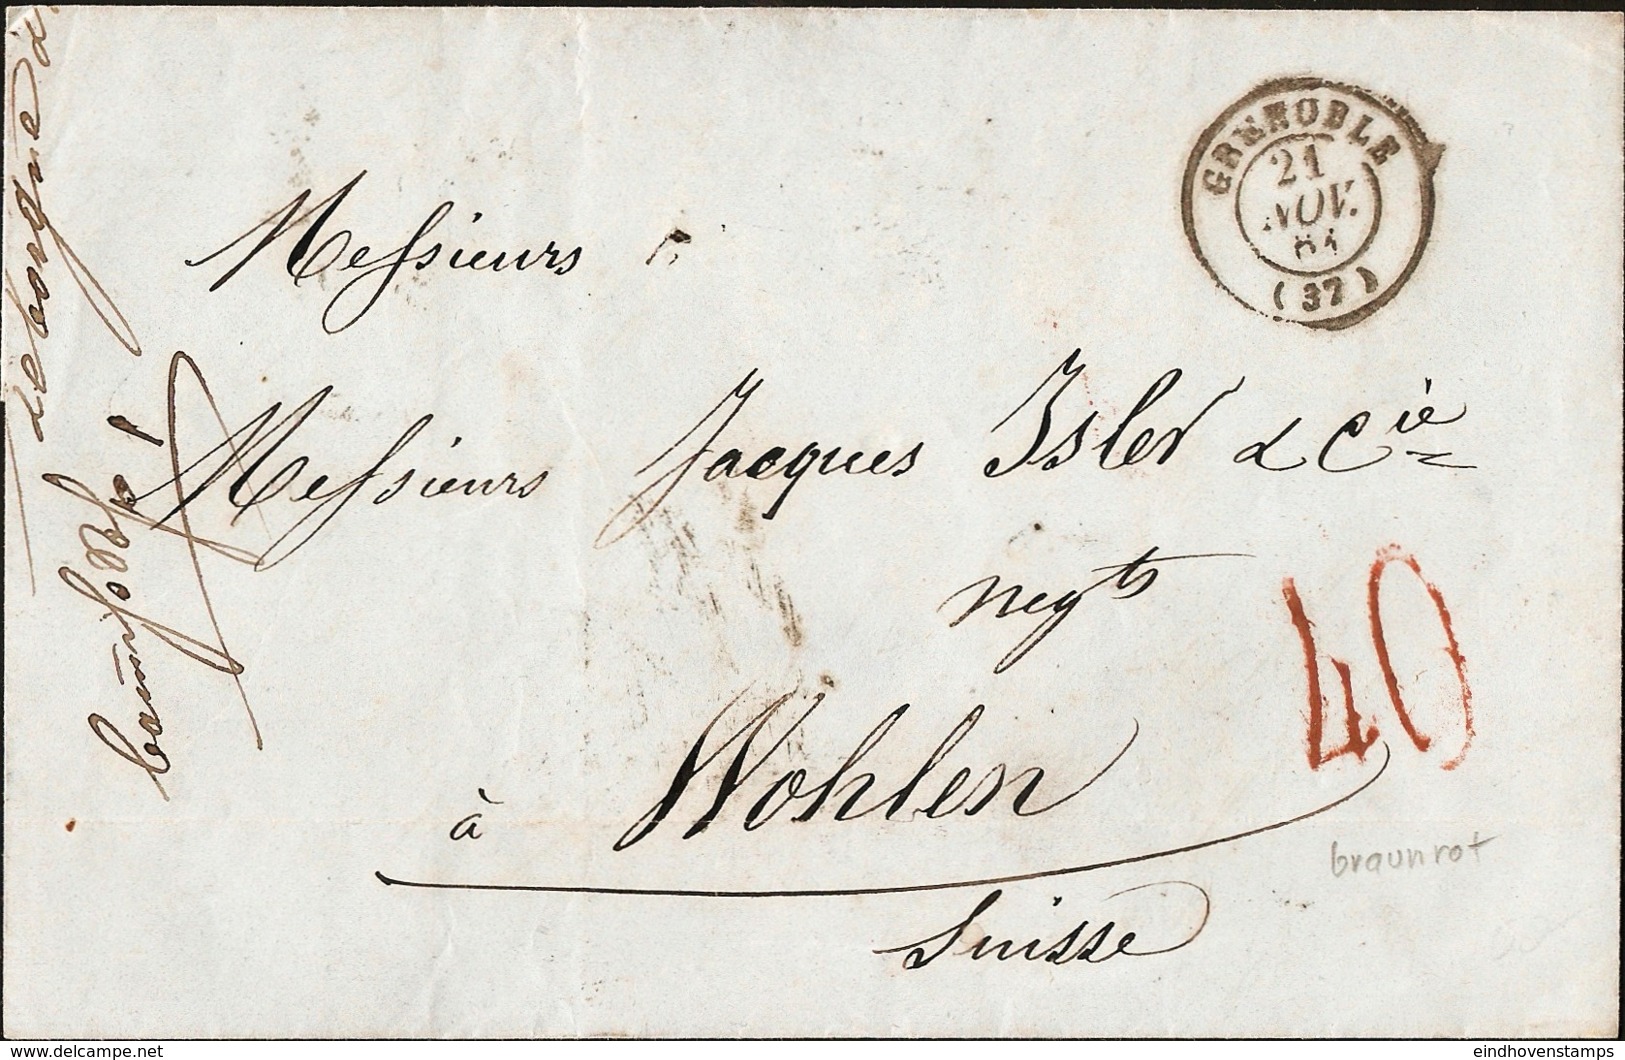 GRENOBLE
21
NOV.
(37)
Messieurs
Messieurs Jacques Isler & Cie
negts
40
à Wohlen
Suisse
braunrot
www.delcampe.net
eindhovenstamps